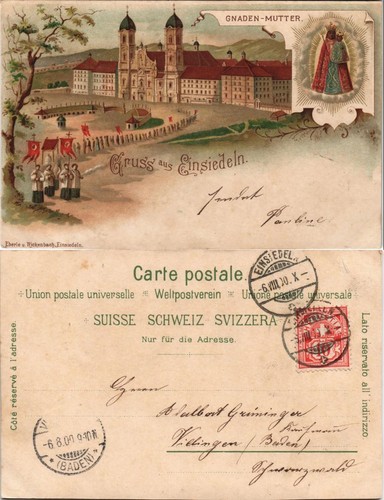 GNADEN-MUTTER.
Gruss aus Einsiedeln.
sendet
Pauline
Eberle u. Rickenbach, Einsiedeln.
Carte postale.
Union postale universelle Weltpostverein Unione postale universale
SUISSE SCHWEIZ SVIZZERA
Nur für die Adresse.
Côté réservé à l'adresse.
Lato riservato all' indirizzo.
EINSIEDELN
-6.VIII.00.X-
Herrn
Adelbert Grüninger
Kaufmann
Villingen (Baden)
Schwarzwald
6.8.00.9-10N
(BADEN)